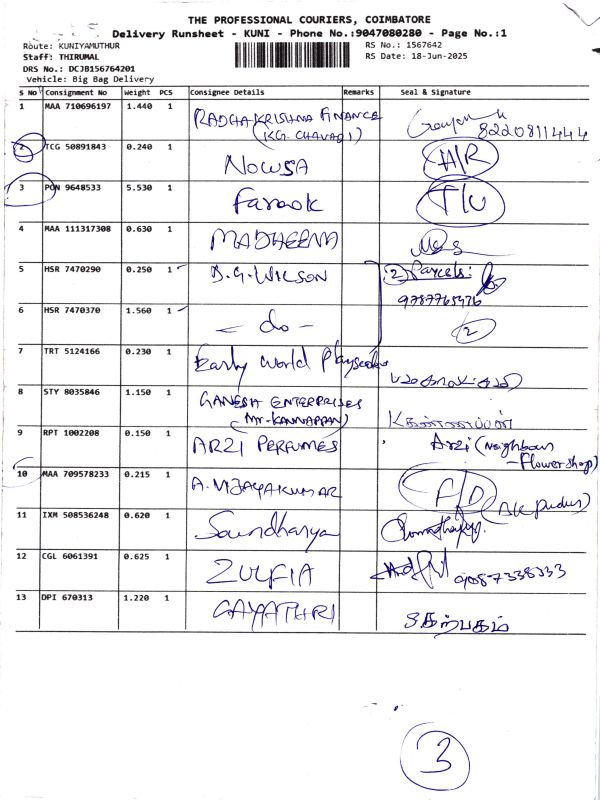 THE PROFESSIONAL COURIERS, COIMBATORE
Delivery Runsheet - KUNI - Phone No.:9047080280 - Page No.:1
Route: KUNIYAMUTHUR RS No.: 1567642
Staff: THIRUMAL RS Date: 18-Jun-2025
DRS No.: DCJB156764201
Vehicle: Big Bag Delivery
S No Consignment No Weight PCS Consignee Details Remarks Seal & Signature
1 MAA 710696197 1.440 1 RADHA KRISHNA FINANCE
(KG. CHAVADI) 8220811444
2 TCG 50891843 0.240 1 NOWSA A/R
3 PON 9648533 5.530 1 Farook T/U
4 MAA 111317308 0.630 1 MADHEENA
5 HSR 7470290 0.250 1 D.G. WILSON 2 Parcels:
6 HSR 7470370 1.560 1 - do - 2
7 TRT 5124166 0.230 1 Early World
8 STY 8035846 1.150 1 GANESH ENTERPRISES
(Mr. KANNAPPAN)
9 RPT 1002208 0.150 1 ARZI PERFUMES Arzi (Neighbour
- Flower shop)
10 MAA 709578233 0.215 1 A. VIJAYAKUMAR F/D
11 IXM 508536248 0.620 1 Soundharya
12 CGL 6061391 0.625 1 ZULFIA
13 DPI 670313 1.220 1 GAYATHRI
3